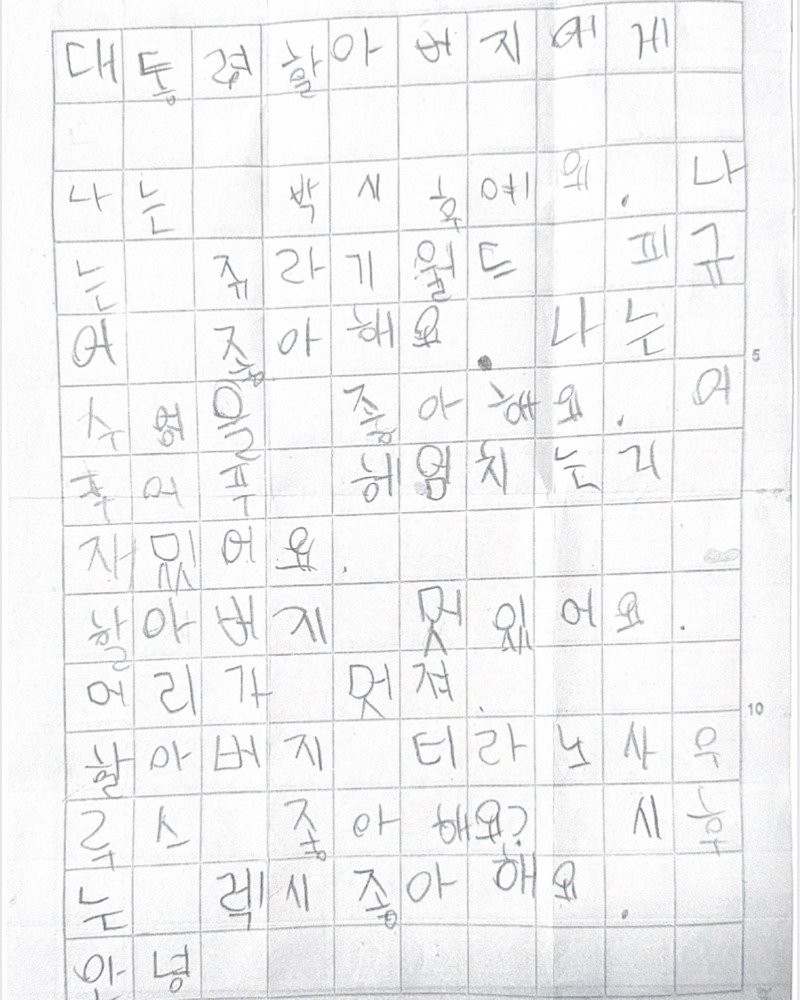 대통령할아버지에게
나는 박시후예요. 나
는 쥬라기월드 피규
어 좋아해요. 나는
5
수영을 좋아해요. 어
푸어푸 헤엄치는거
재밌어요.
할아버지 멋있어요.
머리가 멋져.
10
할아버지 티라노사우
루스 좋아해요? 시후
는 렉시좋아해요.
안녕